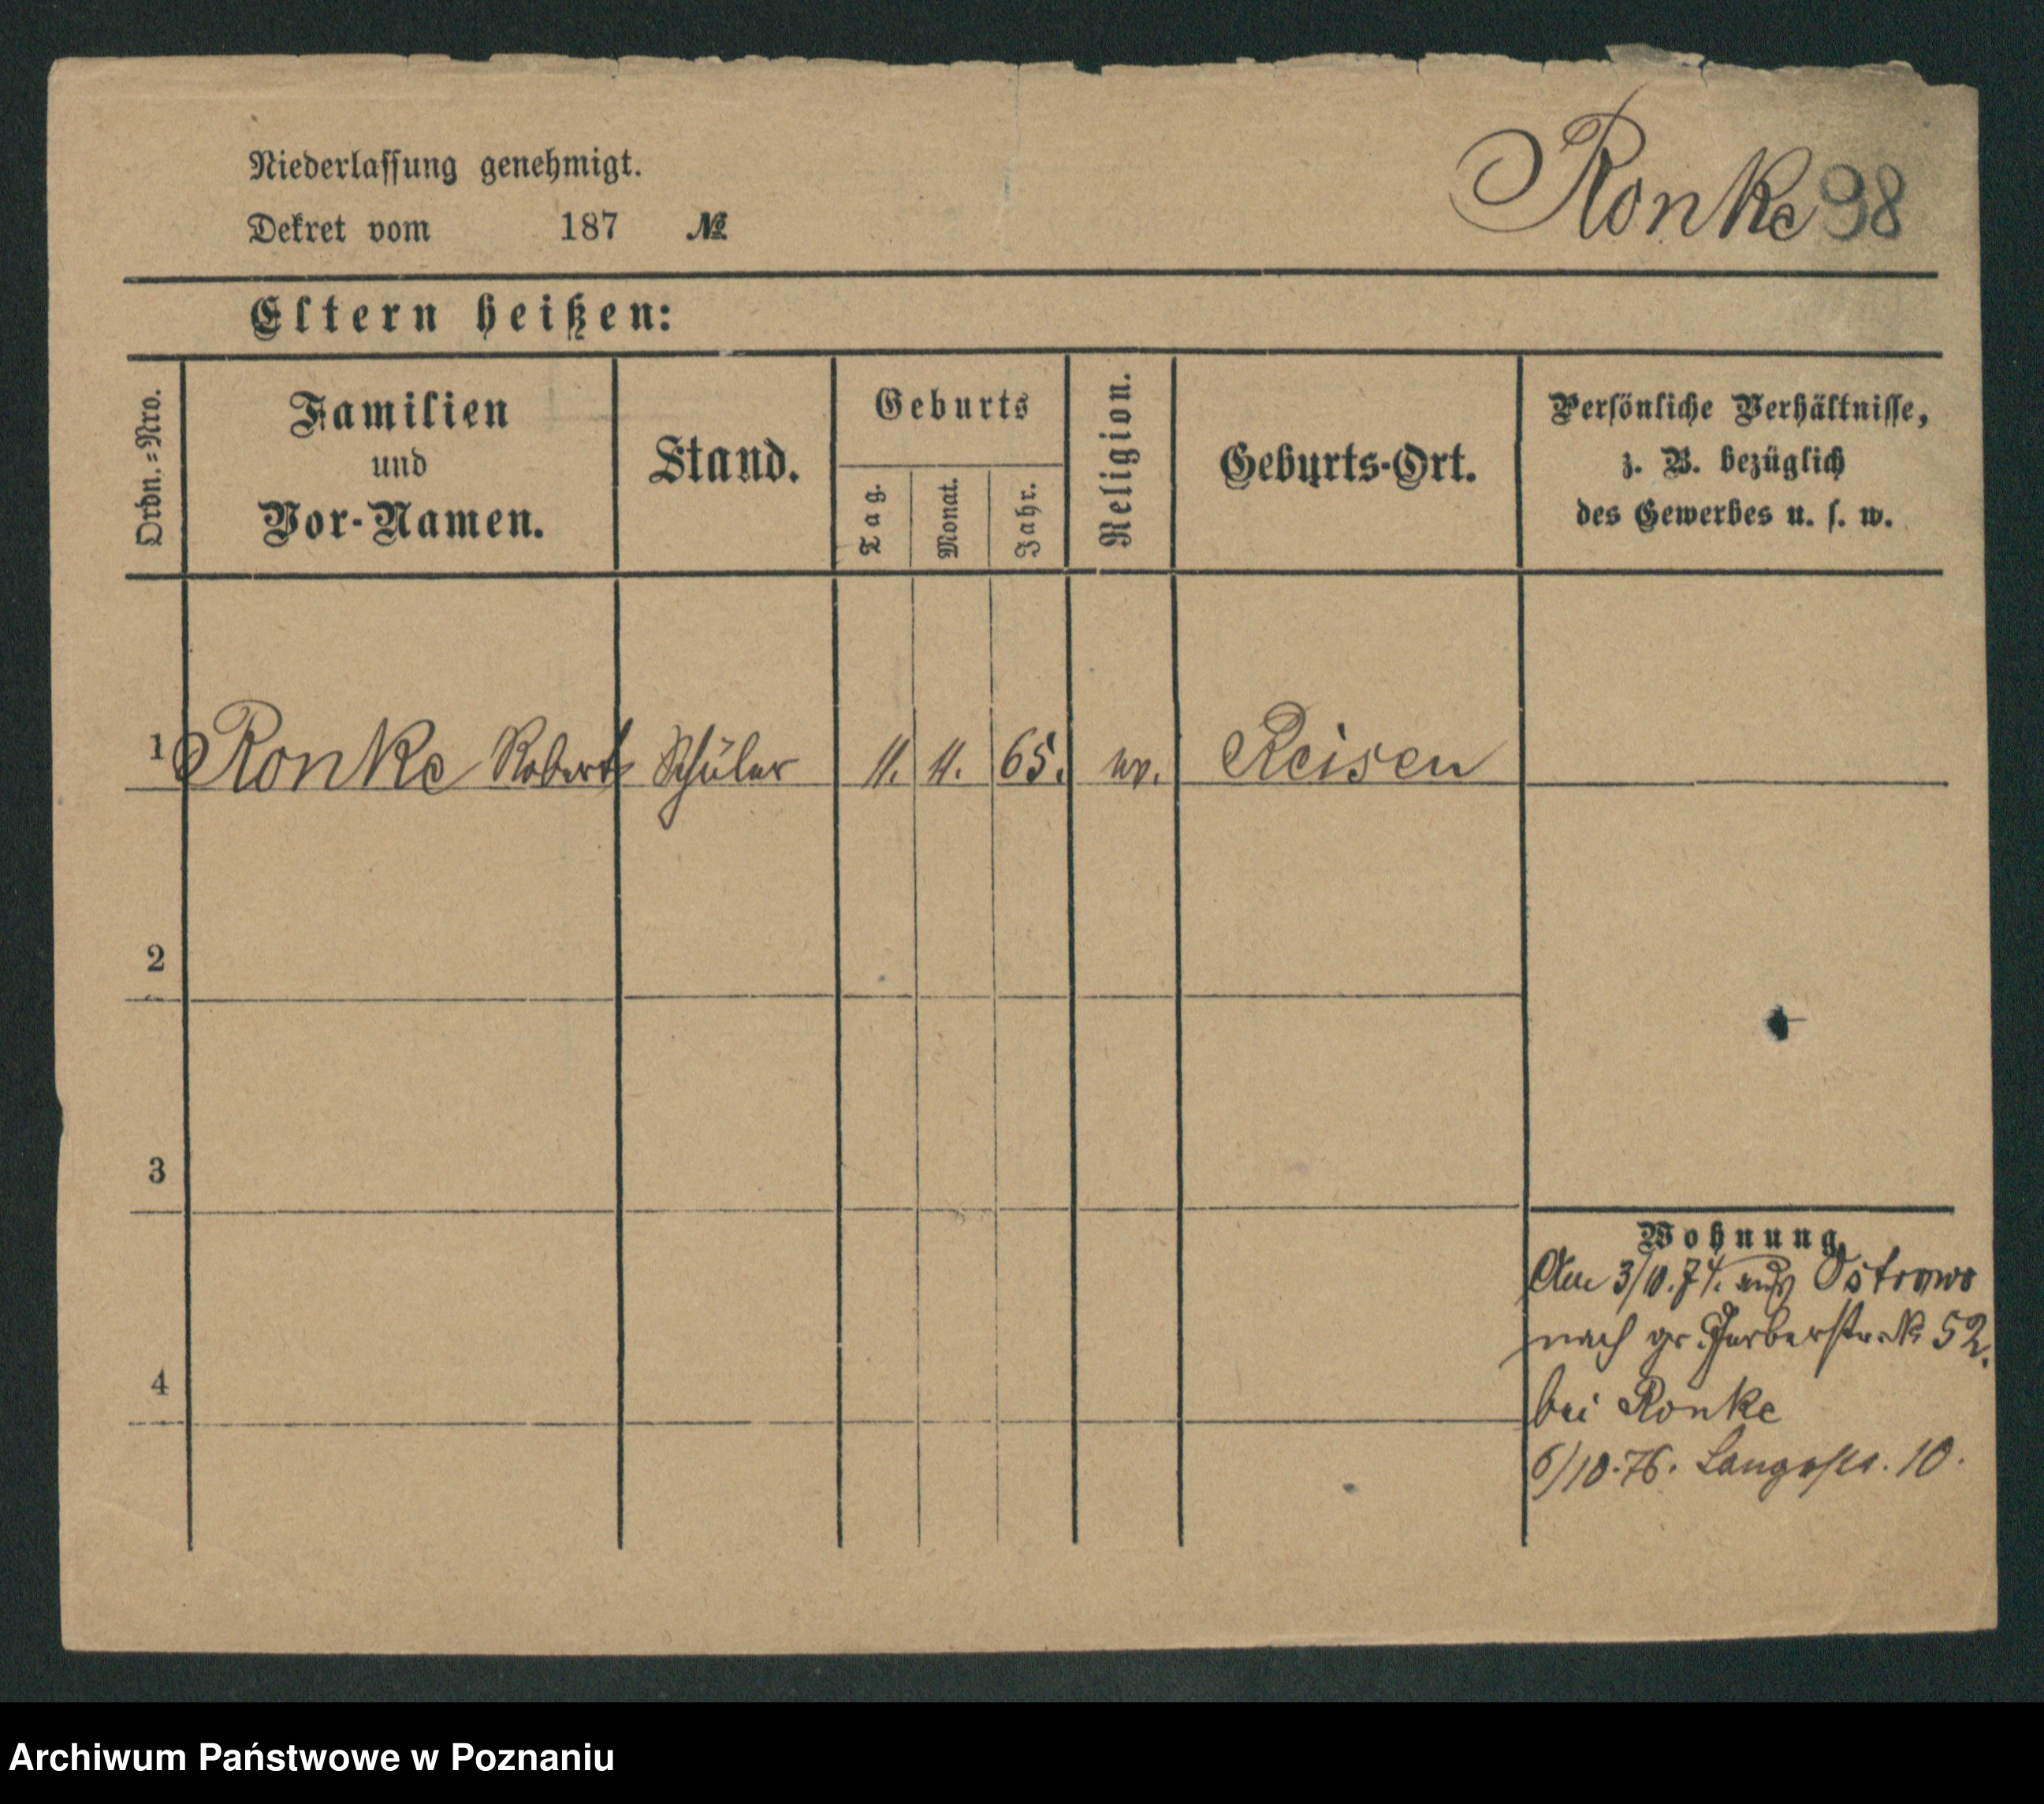 Niederlassung genehmigt.
Dekret vom 187 №
Ronke 98
Eltern heißen:
Ordn.=Nro.
Familien
und
Vor-Namen.
Stand.
Geburts
Tag.
Monat.
Jahr.
Religion.
Geburts-Ort.
Persönliche Verhältnisse,
z. B. bezüglich
des Gewerbes u. s. w.
1 Ronke Robert Schüler 11. 11. 65. ev. Reisen
2
3
4
Wohnung.
Am 3/10.74. aus Ostrowo
nach gr Gerberstr. № 52.
bei Ronke
6/10.76. Langestr. 10.
Archiwum Państwowe w Poznaniu